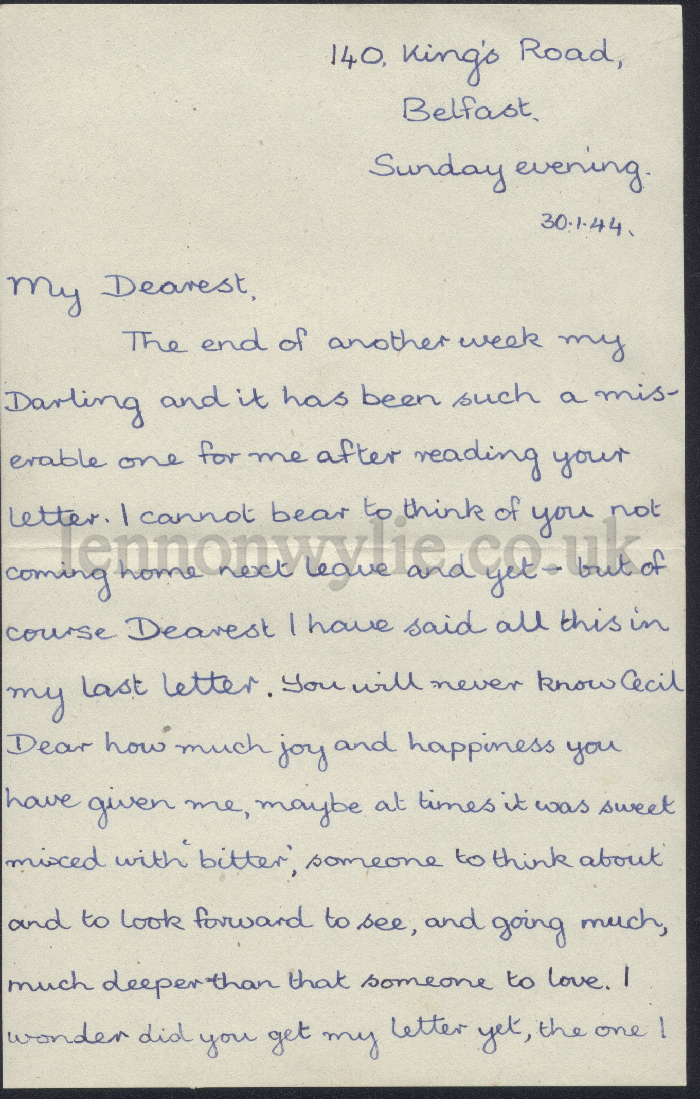 140, King's Road,
Belfast.
Sunday evening.
30.1.44.
My Dearest,
The end of another week my
Darling and it has been such a mis-
erable one for me after reading your
letter. I cannot bear to think of you not
lennonwylie.co.uk
coming home next leave and yet - but of
course Dearest I have said all this in
my last letter. You will never know Cecil
Dear how much joy and happiness you
have given me, maybe at times it was sweet
mixed with 'bitter', someone to think about
and to look forward to see, and going much,
much deeper than that someone to love. I
wonder did you get my letter yet, the one I